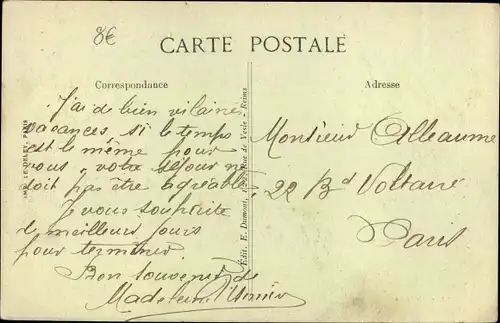 8€
CARTE POSTALE
Correspondance
Adresse
J'ai de bien vilaines
vacances, si le temps
est le même pour
vous, votre séjour ne
doit pas être agréable,
Je vous souhaite
de meilleurs jours
pour terminer
Bon souvenir de
Madeleine
Monsieur Alleaume
22 Bd Voltaire
Paris
Edit. E. Dumont, Rue de Vesle - Reims
IMP. LE DELEY, PARIS